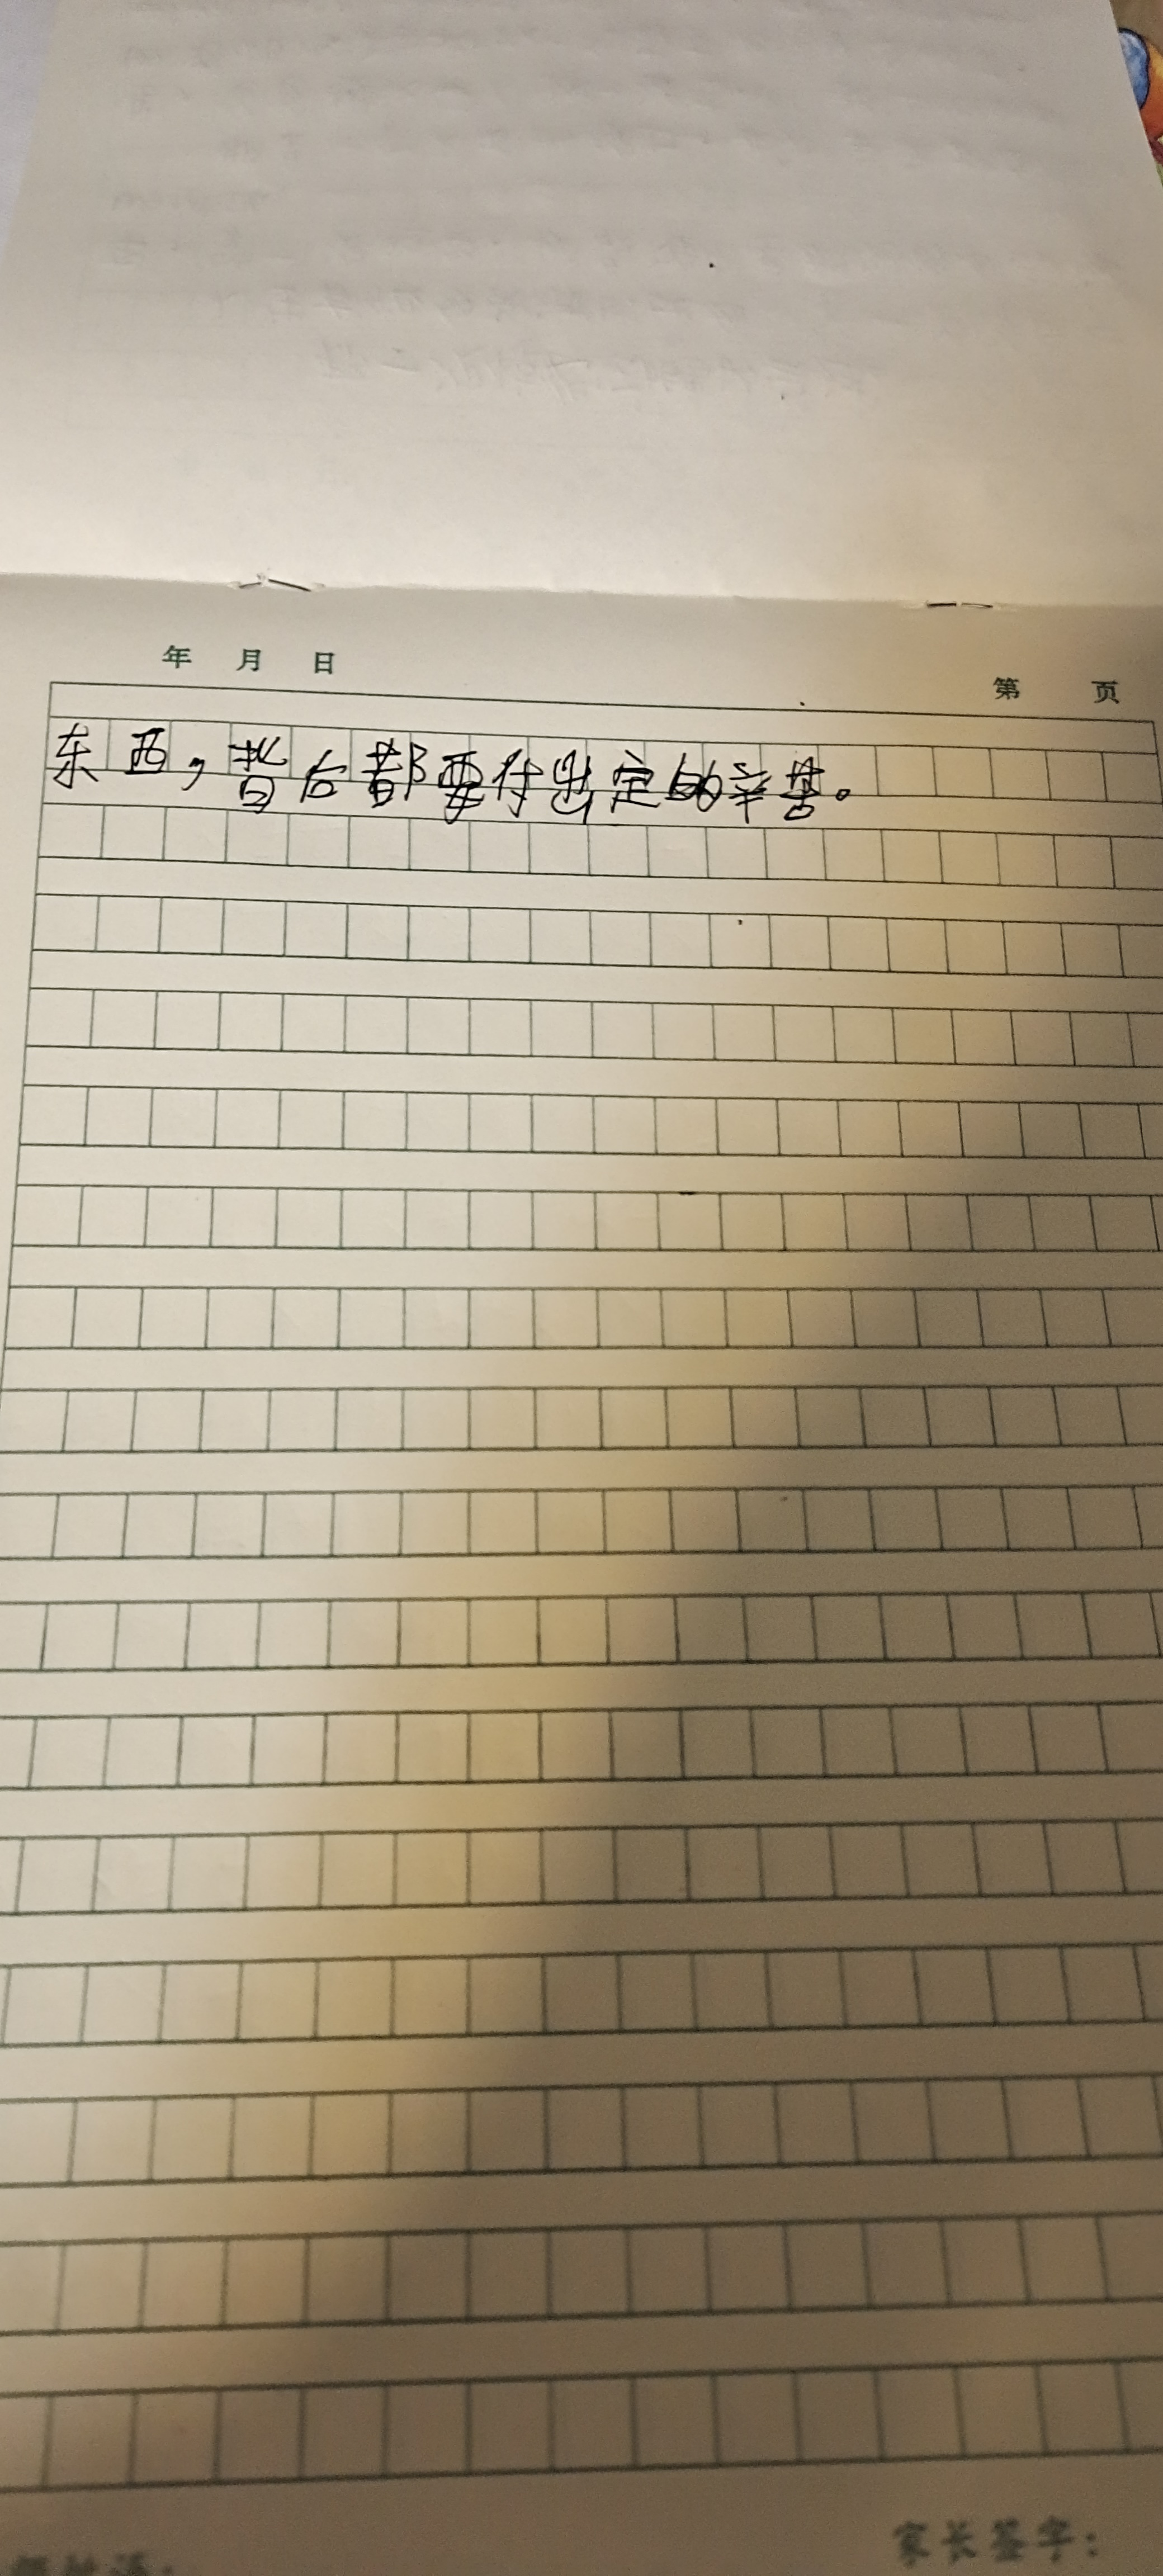 年 月 日
第 页
东西，背后都要付出定的辛苦。
家长签字：